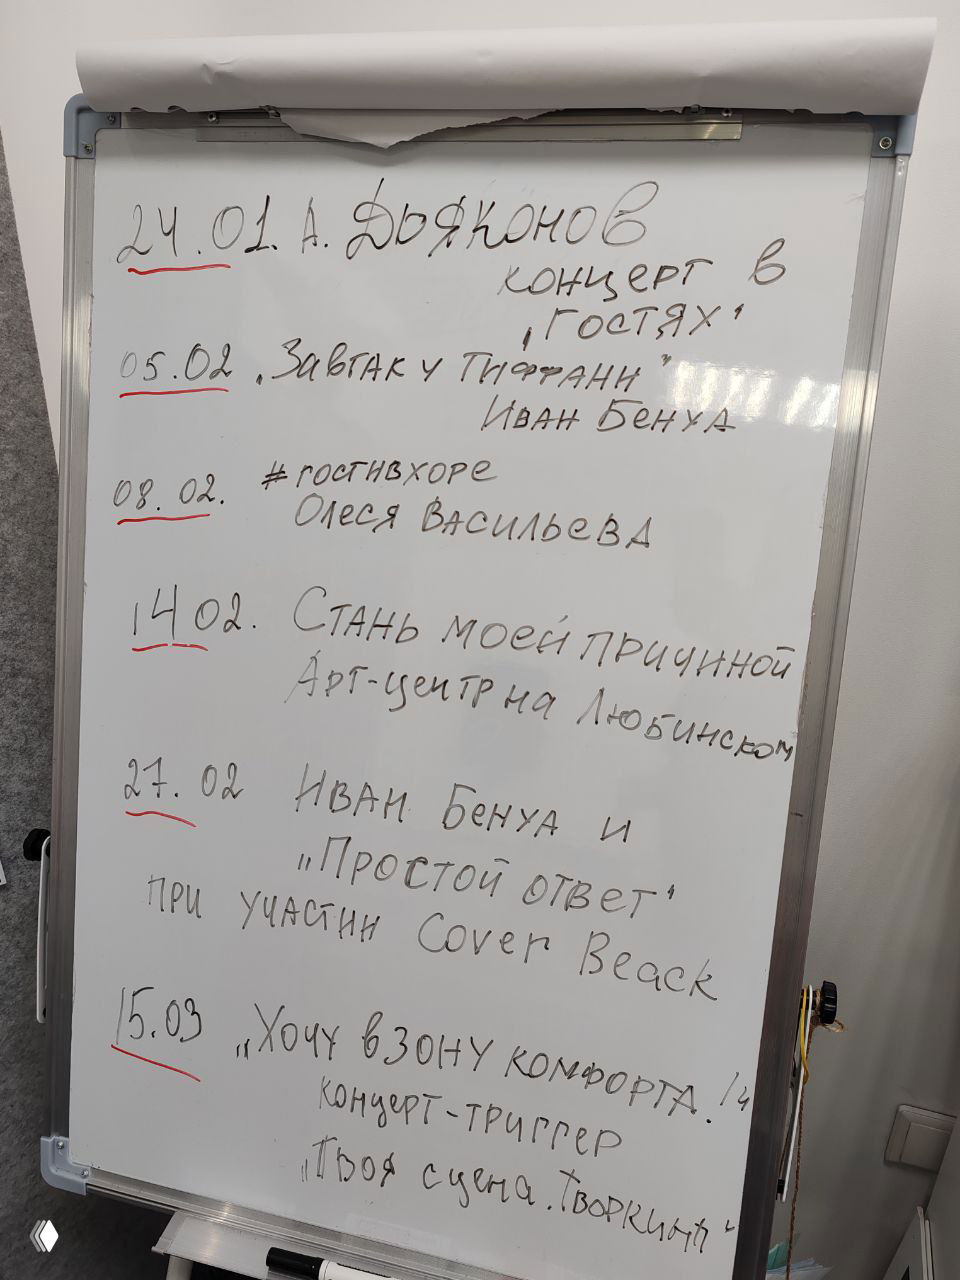 24.01. А. Дьяконов
концерт в
„гостях"
05.02 „Завтак у Тиффани"
Иван Бенуа
08.02. #гостивхоре
Олеся Васильева
14 02. Стань моей причиной
Арт-центр на Любинском
27.02 Иван Бенуа и
„Простой ответ"
при участии Cover Beack
15.03 „Хочу в зону комфорта!"
концерт-триггер
„Твоя сцена. Творкинг"